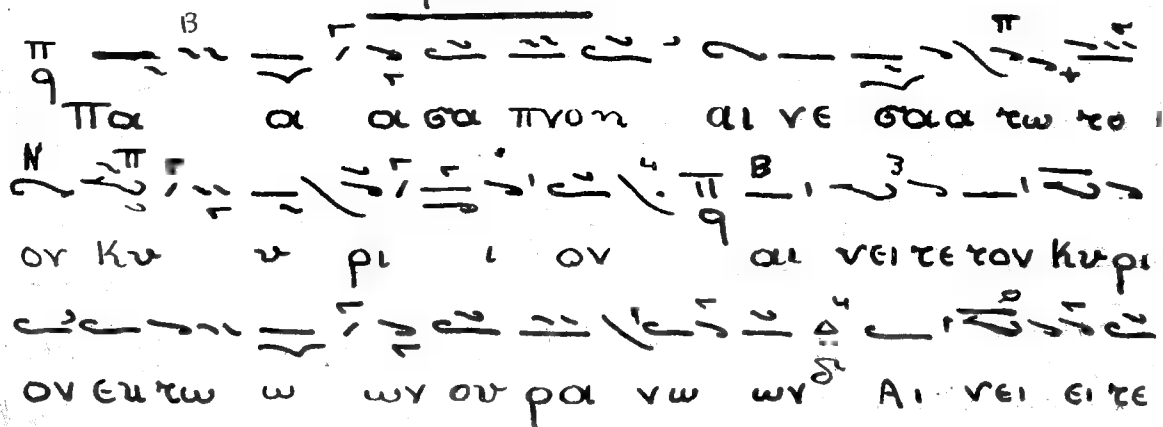 Πα α α σα πνοη αι νε σα α τω το
ον Κυ υ ρι ι ον αι νει τε τον Κυ ρι
ον εκ τω ω ων ου ρα νω ων Αι νει ει τε